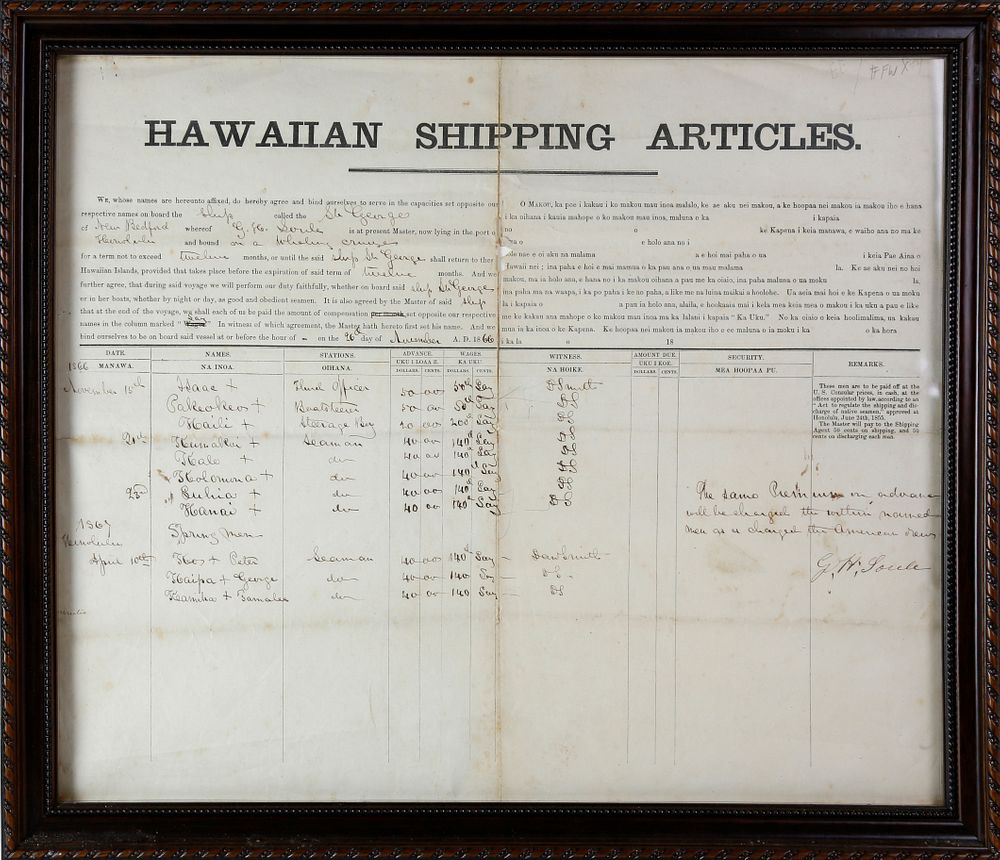 HAWAIIAN SHIPPING ARTICLES.
WE, whose names are hereunto affixed, do hereby agree and bind ourselves to serve in the capacities set opposite our
respective names on board the Ship called the St George
of New Bedford whereof G. H. Soule is at present Master, now lying in the port of
Honolulu and bound on a Whaling cruise
for a term not to exceed twelve months, or until the said ship St George shall return to the
Hawaiian Islands, provided that takes place before the expiration of said term of twelve months. And we
further agree, that during said voyage we will perform our duty faithfully, whether on board said ship St George
or in her boats, whether by night or day, as good and obedient seamen. It is also agreed by the Master of said ship
that at the end of the voyage, we shall each of us be paid the amount of compensation set opposite our respective
names in the column marked " Lay " In witness of which agreement, the Master hath hereto first set his name. And we
bind ourselves to be on board said vessel at or before the hour of - on the 26th day of November A. D. 1866
O MAKOU, ka poe i kakau i ko makou mau inoa malalo, ke ae aku nei makou, a ke hoopaa nei makou ia makou iho e hana
i ka oihana i kauia mahope o ko makou mau inoa, maluna o ka i kapaia
no o ke Kapena i keia manawa, e waiho ana no ma ke
o e holo ana no i
ole nae e oi aku na malama a e hoi mai paha o ua i keia Pae Aina o
Hawaii nei; ina paha e hoi e mai mamua o ka pau ana o ua mau malama la. Ke ae aku nei no hoi
makou, ma ia holo ana, e hana no i ka makou oihana a pau me ka oiaio, ina paha maluna o ua moku la,
ina paha ma na waapa, i ka po paha i ke ao paha, a like me na luina maikai a hoolohe. Ua aeia mai hoi e ke Kapena o ua moku
la i kapaia o a pau ia holo ana, alaila, e hookaaia mai i kela mea keia mea o makou i ka uku a pau e like
me ke kakau ana mahope o ko makou mau inoa ma ka lalani i kapaia "Ka Uku." No ka oiaio o keia hoolimalima, na kakau
mua ia ka inoa o ke Kapena. Ke hoopaa nei makou ia makou iho e ee maluna o ia moku i ka o ka hora
i ka la o 18
DATE. NAMES. STATIONS. ADVANCE. WAGES. WITNESS. AMOUNT DUE. SECURITY. REMARKS.
MANAWA. NA INOA. OIHANA. UKU I LOAA E. KA UKU. NA HOIKE. UKU I KOE. MEA HOOPAA PU.
DOLLARS. CENTS. DOLLARS. CENTS. DOLLARS. CENTS.
1866
November 15th Isaac + Third Officer 50 00 50th Lay D Smith
Pakeokeo + Boatsteerer 50 00 Lay
Kaili + Steerage Boy 20 00 200th Lay
21st + Seaman 40 00 140th Lay
Kale + do 40 00 140th Lay
Kolomona + do 40 00 140th Lay
23d + do 40 00 140th Lay
Kanai + do 40 00 140th Lay
1867
Honolulu Spring men
April 10th Kos + Peter Seaman 40 00 140th Lay Dan Smith
Kaipa + George do 40 00 140 Lay
Kamika + do 40 00 140 Lay
These men are to be paid off at the
U. S. Consular prices, in cash, at the
offices appointed by law, according to an
"Act to regulate the shipping and dis-
charge of native seamen," approved at
Honolulu, June 24th, 1855.
The Master will pay to the Shipping
Agent 50 cents on shipping, and 50
cents on discharging each man.
The same Premium on advance
will be charged the within named
men as is charged the American crews
G. H. Soule